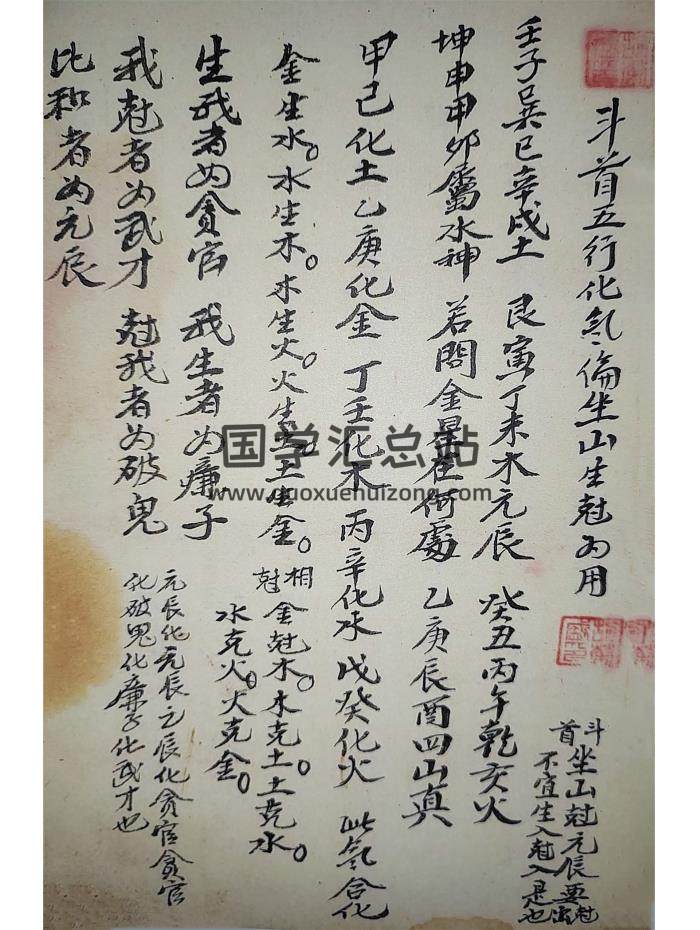 斗首五行化氣俻坐山生尅为用
斗首坐山尅元辰要尅出
不宜生入尅入是也
壬子巳巽巳辛戌土 艮寅丁未木元辰 癸丑丙午乾亥火
坤申甲卯屬水神 若問金星在何處 乙庚辰酉四山真
甲己化土乙庚化金 丁壬化木 丙辛化水 戊癸化火 此氣合化
金生水。水生木。木生火。火生土。土生金。
相尅 金尅木。木克土。土克水。
水克火。火克金。
生我者为貪官 我生者为廉子
我尅者为武才 尅我者为破鬼
比和者为元辰
元辰化元辰元辰化貪官貪官
化破鬼化廉子化武才也
国学汇总站
www.guoxuehuizong.com